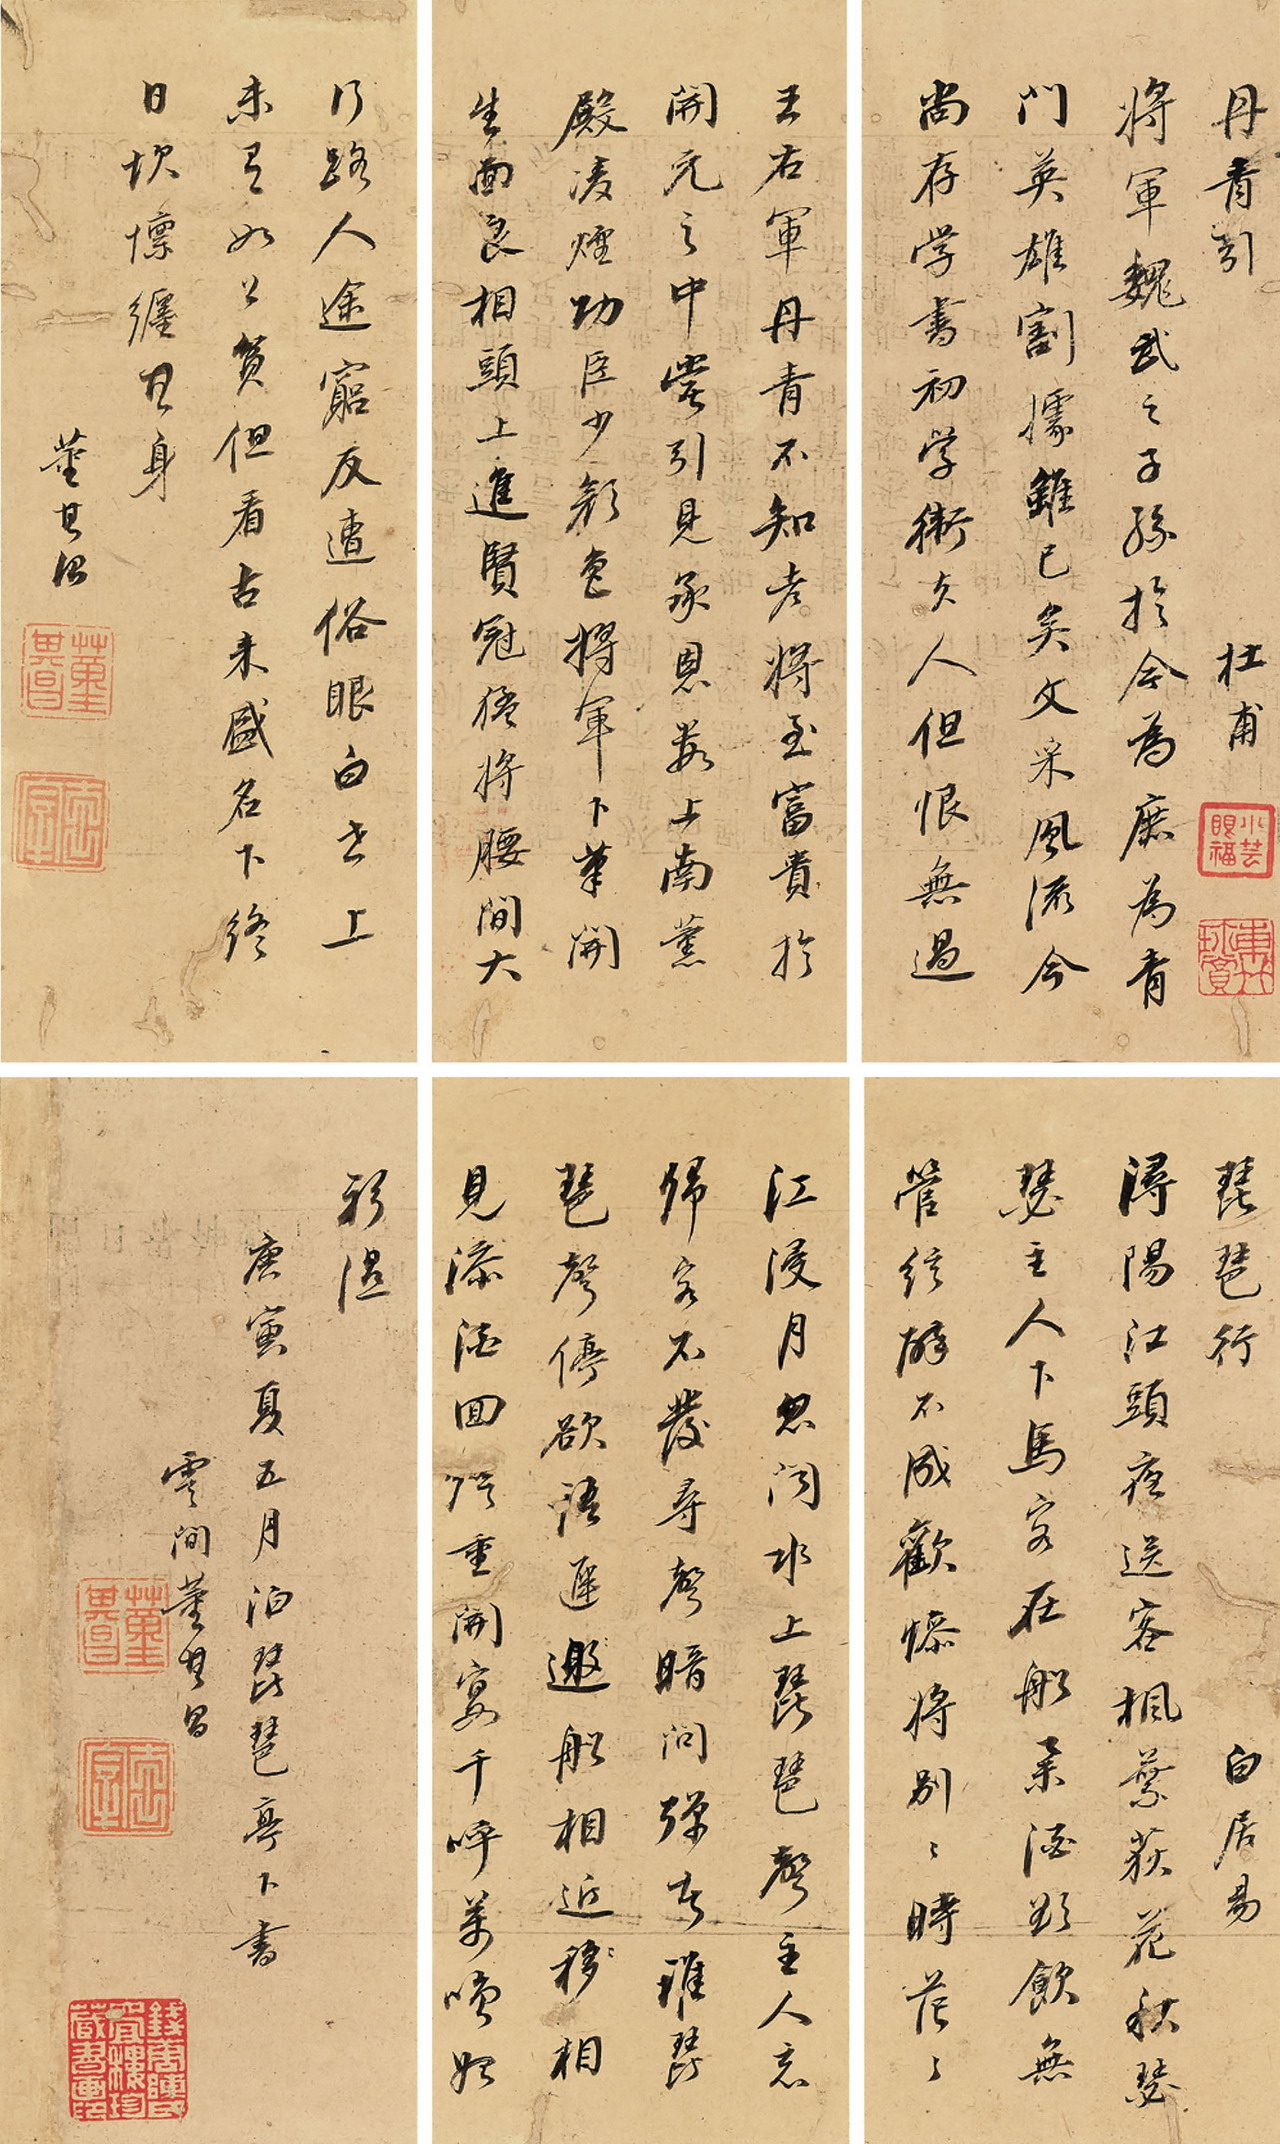 丹青引 杜甫
將軍魏武之子孫於今為庶為青
門英雄割據雖已矣文采風流今
尚存学書初学衛夫人但恨無過
王右軍丹青不知老將至富貴於
開元之中常引見承恩數上南薰
殿凌煙功臣少顏色將軍下筆開
生面良相頭上進賢冠猛將腰間大
行路人途窮反遭俗眼白世上
未有如公貧但看古來盛名下終
日坎懍纏其身
董其昌
董其昌
琵琶行 白居易
潯陽江頭夜送客楓葉荻花秋瑟
瑟主人下馬客在船舉酒欲飲無
管絃醉不成歡慘將別〻時茫〻
江浸月忽聞水上琵琶聲主人忘
歸客不發尋聲暗問彈者誰琵
琶聲停欲語遲邀船相近移相
見添酒回燈重開宴千呼萬喚始
新溫
庚寅夏五月泊琵琶亭下書
雲間董其昌
董其昌